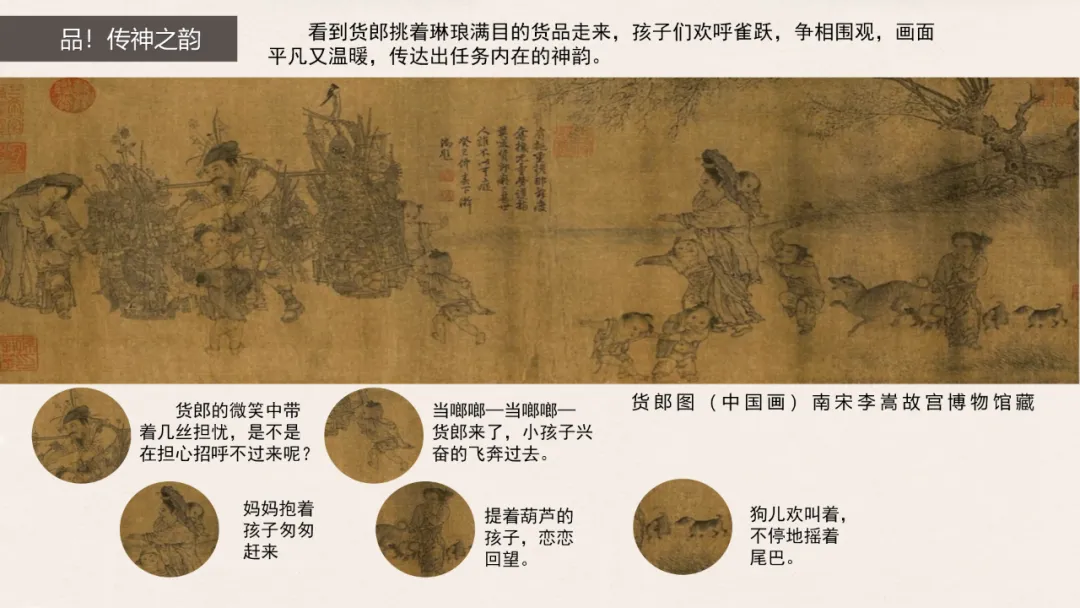 品！传神之韵
看到货郎挑着琳琅满目的货品走来，孩子们欢呼雀跃，争相围观，画面
平凡又温暖，传达出任务内在的神韵。
货郎图（中国画）南宋李嵩故宫博物馆藏
货郎的微笑中带
着几丝担忧，是不是
在担心招呼不过来呢？
当啷啷—当啷啷—
货郎来了，小孩子兴
奋的飞奔过去。
妈妈抱着
孩子匆匆
赶来
提着葫芦的
孩子，恋恋
回望。
狗儿欢叫着，
不停地摇着
尾巴。